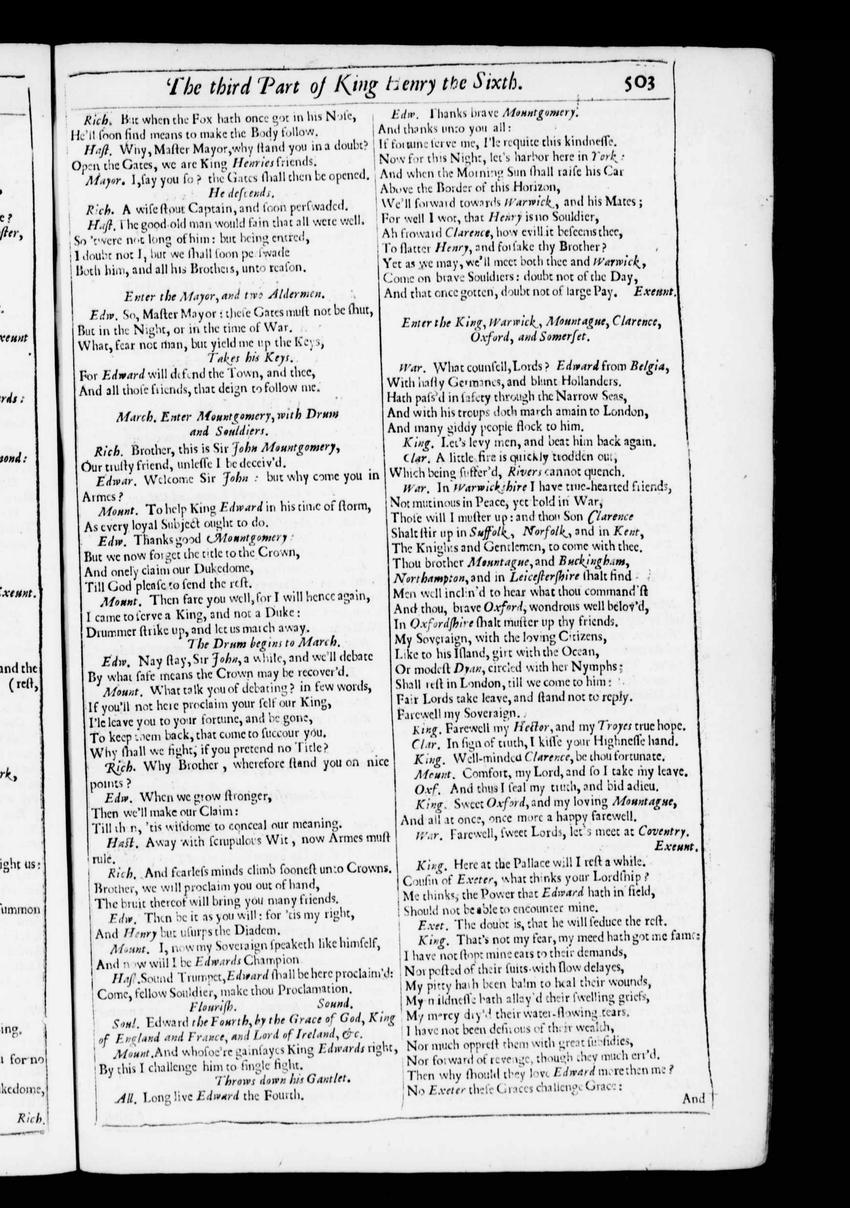 The third Part of King Henry the Sixth. 503
Rich. But when the Fox hath once got in his Nose,
He'll soon find means to make the Body follow.
Hast. Why, Master Mayor, why stand you in a doubt?
Open the Gates, we are King Henries friends.
Mayor. I, say you so? the Gates shall then be opened.
He descends.
Rich. A wise stout Captain, and soon perswaded.
Hast. The good old man would fain that all were well.
So 'twere not long of him: but being entred,
I doubt not I, but we shall soon perswade
Both him, and all his Brothers, unto reason.
Enter the Mayor, and two Aldermen.
Edw. So, Master Mayor: these Gates must not be shut,
But in the Night, or in the time of War.
What, fear not man, but yield me up the Keys,
Takes his Keys.
For Edward will defend the Town, and thee,
And all those friends, that deign to follow me.
March. Enter Mountgomery, with Drum
and Souldiers.
Rich. Brother, this is Sir John Mountgomery,
Our trusty friend, unlesse I be deceiv'd.
Edwar. Welcome Sir John: but why come you in
Armes?
Mount. To help King Edward in his time of storm,
As every loyal Subject ought to do.
Edw. Thanks good Mountgomery:
But we now forget the title to the Crown,
And onely claim our Dukedome,
Till God please to send the rest.
Mount. Then fare you well, for I will hence again,
I came to serve a King, and not a Duke:
Drummer strike up, and let us march away.
The Drum begins to March.
Edw. Nay stay, Sir John, a while, and we'll debate
By what safe means the Crown may be recover'd.
Mount. What talk you of debating? in few words,
If you'll not here proclaim your self our King,
I'le leave you to your fortune, and be gone,
To keep them back, that come to succour you.
Why shall we fight, if you pretend no Title?
Rich. Why Brother, wherefore stand you on nice
points?
Edw. When we grow stronger,
Then we'll make our Claim:
Till then, 'tis wisdome to conceal our meaning.
Hast. Away with scrupulous Wit, now Armes must
rule.
Rich. And fearless minds climb soonest unto Crowns.
Brother, we will proclaim you out of hand,
The bruit thereof will bring you many friends.
Edw. Then be it as you will: for 'tis my right,
And Henry but usurps the Diadem.
Mount. I, now my Soveraign speaketh like himself,
And now will I be Edwards Champion
Hast. Sound Trumpet, Edward shall be here proclaim'd:
Come, fellow Souldier, make thou Proclamation.
Flourish. Sound.
Soul. Edward the Fourth, by the Grace of God, King
of England and France, and Lord of Ireland, &c.
Mount. And whosoe're gainsayes King Edwards right,
By this I challenge him to single fight.
Throws down his Gantlet.
All. Long live Edward the Fourth.
Edw. Thanks brave Mountgomery.
And thanks unto you all:
If fortune serve me, I'le requite this kindnesse.
Now for this Night, let's harbor here in York:
And when the Morning Sun shall raise his Car
Above the Border of this Horizon,
We'll forward towards Warwick, and his Mates;
For well I wot, that Henry is no Souldier,
Ah froward Clarence, how evill it beseems thee,
To flatter Henry, and forsake thy Brother?
Yet as we may, we'll meet both thee and Warwick,
Come on brave Souldiers: doubt not of the Day,
And that once gotten, doubt not of large Pay. Exeunt.
Enter the King, Warwick, Mountague, Clarence,
Oxford, and Somerset.
War. What counsell, Lords? Edward from Belgia,
With hasty Germanes, and blunt Hollanders.
Hath pass'd in safety through the Narrow Seas,
And with his troups doth march amain to London,
And many giddy people flock to him.
King. Let's levy men, and beat him back again.
Clar. A little fire is quickly trodden out,
Which being suffer'd, Rivers cannot quench.
War. In Warwickshire I have true-hearted friends,
Not mutinous in Peace, yet bold in War,
Those will I muster up: and thou Son Clarence
Shalt stir up in Suffolk, Norfolk, and in Kent,
The Knights and Gentlemen, to come with thee.
Thou brother Mountague, and Buckingham,
Northampton, and in Leicestershire shalt find
Men well inclin'd to hear what thou command'st
And thou, brave Oxford, wondrous well belov'd,
In Oxfordshire shalt muster up thy friends.
My Soveraign, with the loving Citizens,
Like to his Island, girt with the Ocean,
Or modest Dyan, circled with her Nymphs;
Shall rest in London, till we come to him:
Fair Lords take leave, and stand not to reply.
Farewell my Soveraign.
King. Farewell my Hector, and my Troyes true hope.
Clar. In sign of truth, I kisse your Highnesse hand.
King. Well-minded Clarence, be thou fortunate.
Mount. Comfort, my Lord, and so I take my leave.
Oxf. And thus I seal my truth, and bid adieu.
King. Sweet Oxford, and my loving Mountague,
And all at once, once more a happy farewell.
War. Farewell, sweet Lords, let's meet at Coventry.
Exeunt.
King. Here at the Pallace will I rest a while.
Cousin of Exeter, what thinks your Lordship?
Me thinks, the Power that Edward hath in field,
Should not be able to encounter mine.
Exet. The doubt is, that he will seduce the rest.
King. That's not my fear, my meed hath got me fame:
I have not stopt mine ears to their demands,
Nor posted of their suits with slow delayes,
My pitty hath been balm to heal their wounds,
My mildnesse hath allay'd their swelling griefs,
My mercy dry'd their water-flowing tears.
I have not been desirous of their wealth,
Nor much opprest them with great subsidies,
Nor forward of revenge, though they much err'd.
Then why should they love Edward more then me?
No Exeter these Graces challenge Grace:
And